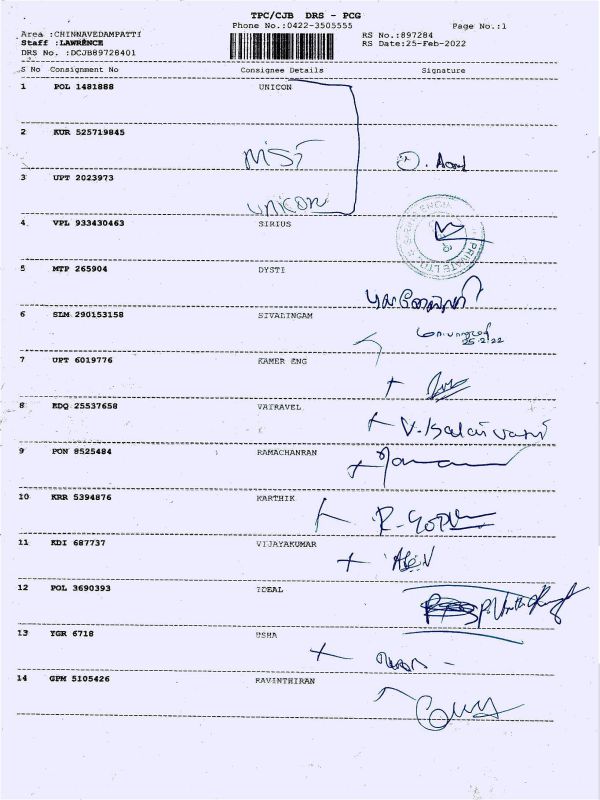 TPC/CJB DRS - PCG
Phone No.:0422-3505555
Page No.:1
Area :CHINNAVEDAMPATTI
Staff :LAWRENCE
DRS No. :DCJB89728401
RS No.:897284
RS Date:25-Feb-2022
S No Consignment No Consignee Details Signature
1 POL 1481888 UNICON
2 KUR 525719845
MIST
3 UPT 2023973
unicon
4 VPL 933430463 SIRIUS
PRIVATE LTD
5 MTP 265904 DYSTI
6 SLM 290153158 SIVALINGAM
25.2.22
7 UPT 6019776 KAMER ENG
8 EDQ 25537658 VATRAVEL
V. Kalaivani
9 PON 8525484 RAMACHANRAN
10 KRR 5394876 KARTHIK
R. Gopu
11 KDI 687737 VIJAYAKUMAR
12 POL 3690393 IDEAL
13 YGR 6718 USHA
14 GPM 5105426 RAVINTHIRAN